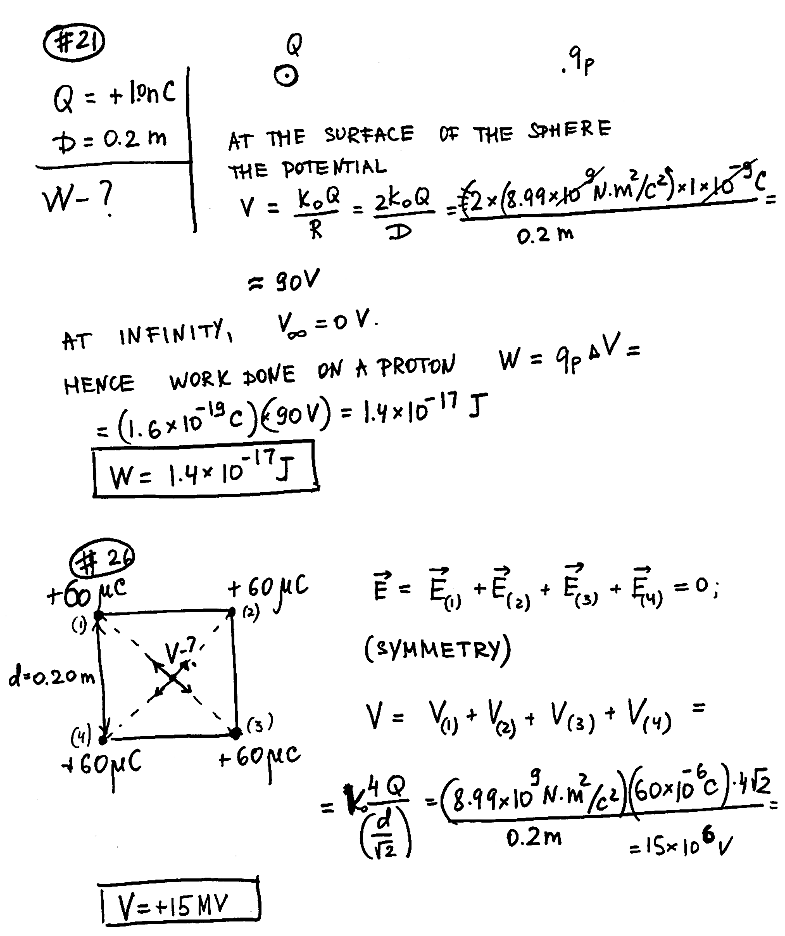 #21
Q
.qp
Q = +1.0nC
D = 0.2 m
W-?
AT THE SURFACE OF THE SPHERE
THE POTENTIAL
V = k₀Q/R = 2k₀Q/D = 2×(8.99×10⁹ N·m²/C²)×1×10⁻⁹C / 0.2 m =
≈ 90V
AT INFINITY, V∞ = 0 V.
HENCE WORK DONE ON A PROTON W = qp ΔV =
= (1.6×10⁻¹⁹C)(90V) = 1.4×10⁻¹⁷ J
W = 1.4×10⁻¹⁷J
#26
+60 μC +60 μC
(1) (2)
E⃗ = E⃗(1) + E⃗(2) + E⃗(3) + E⃗(4) = 0;
(SYMMETRY)
V-?
d=0.20m
(4) (3)
+60μC +60μC
V = V(1) + V(2) + V(3) + V(4) =
= k₀ 4Q/(d/√2) = (8.99×10⁹ N·m²/C²)(60×10⁻⁶C)·4√2 / 0.2m =
= 15×10⁶ V
V=+15MV